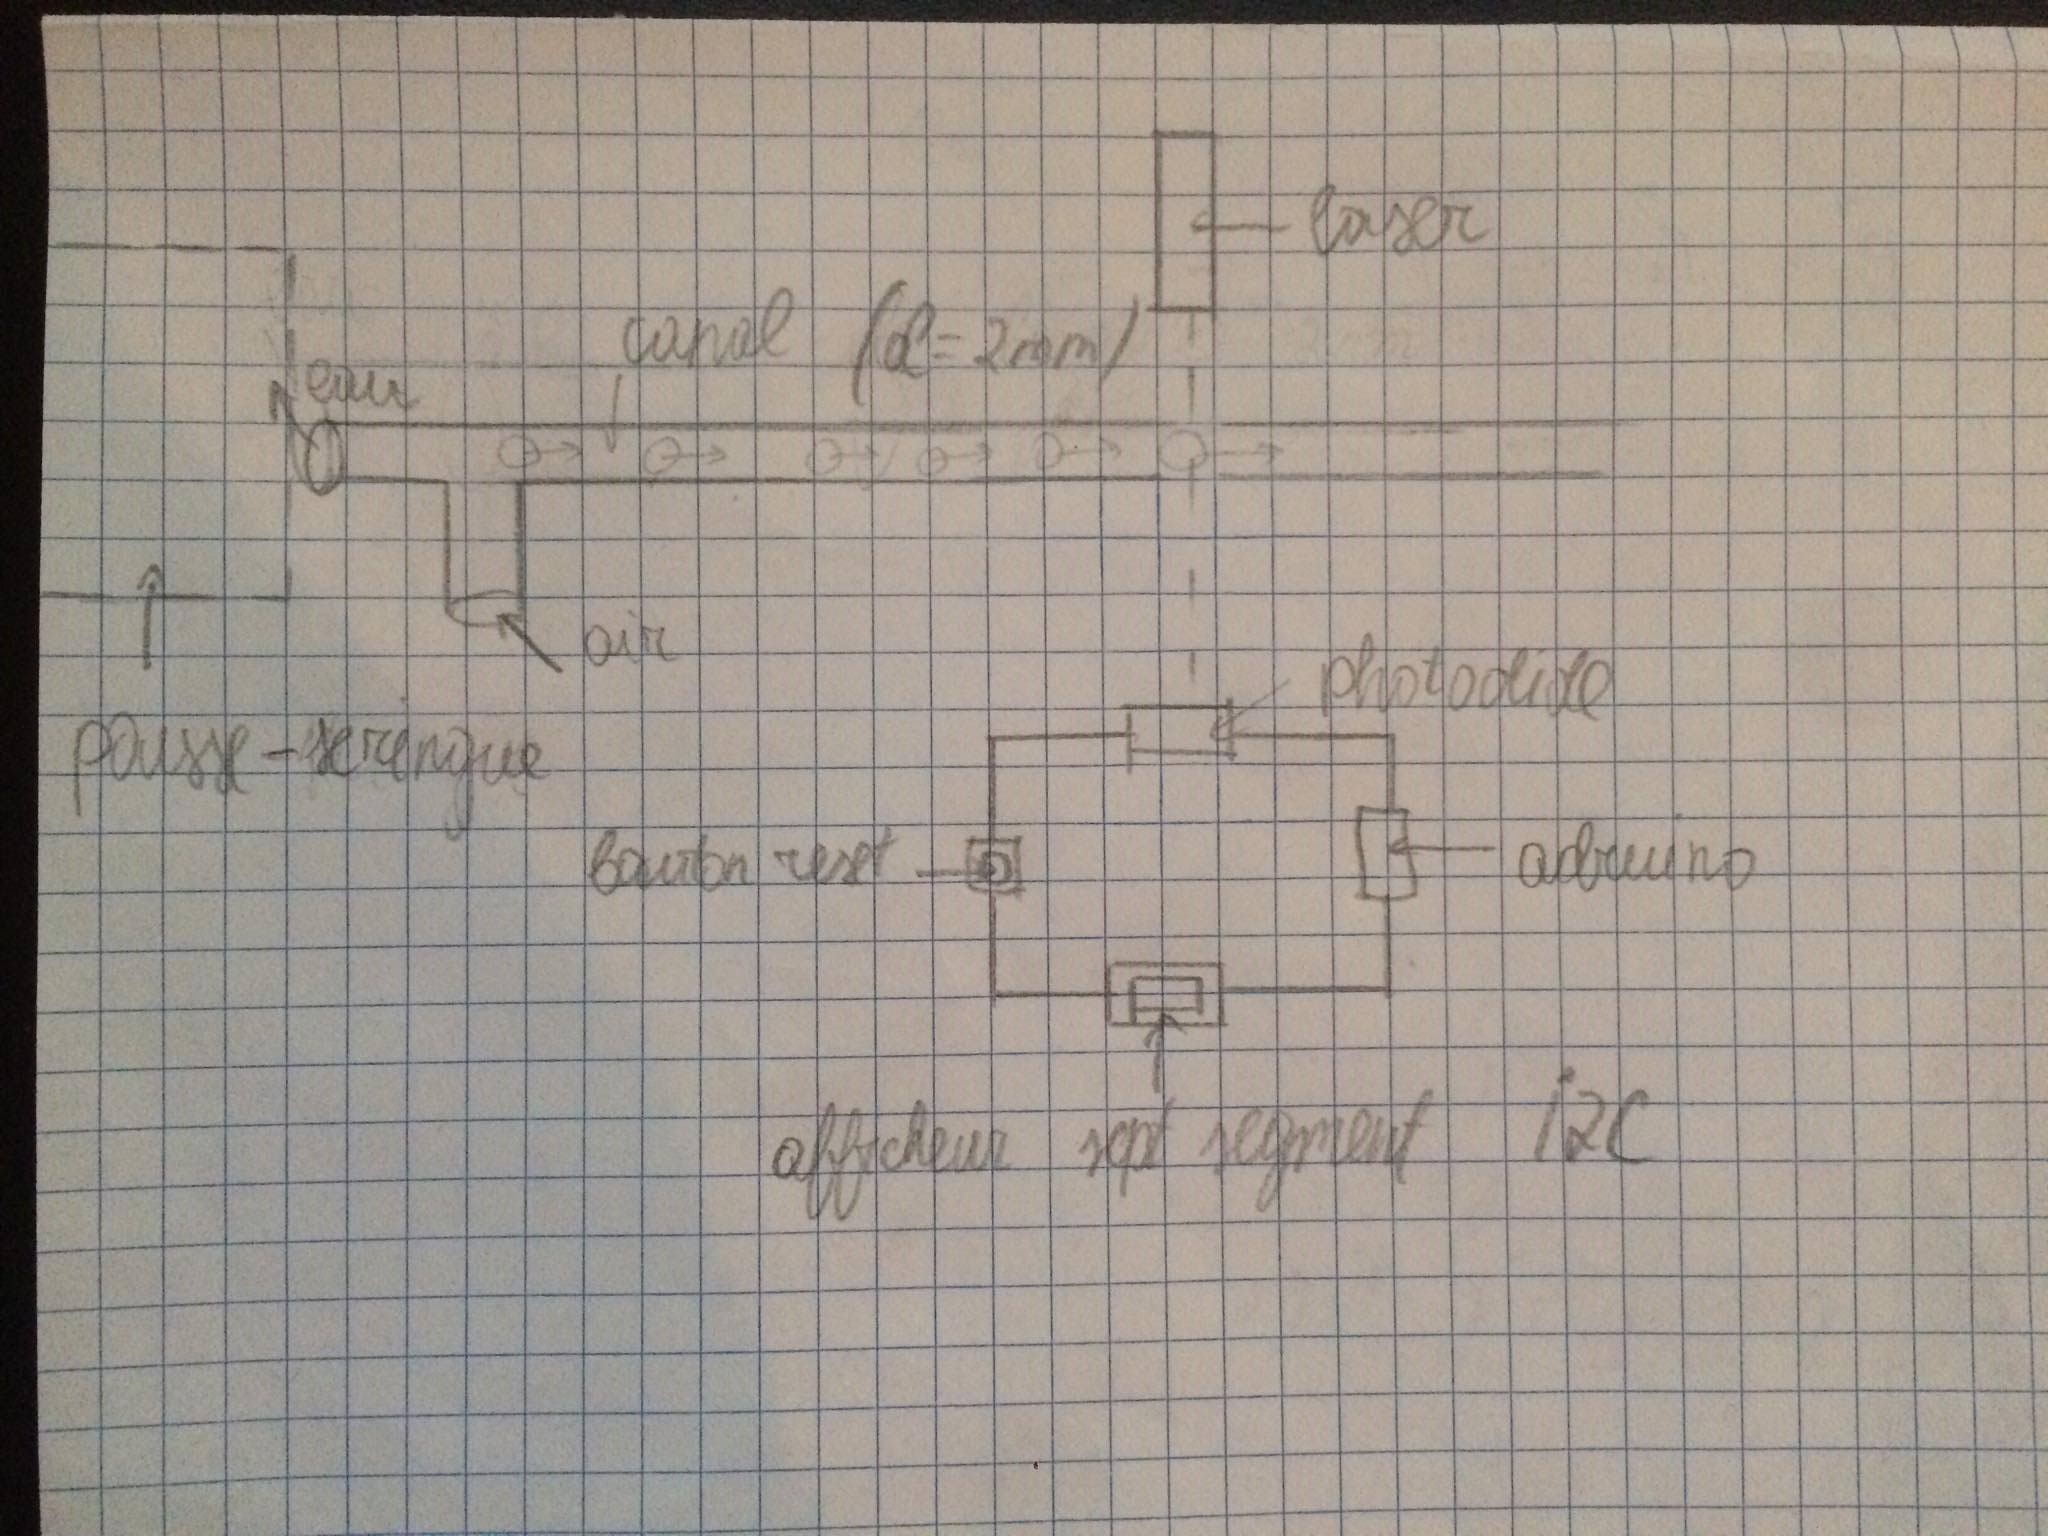 laser
canal (d=2mm)
eau
air
photodiode
pousse-seringue
bouton reset
adruino
afficheur sept segment i2C